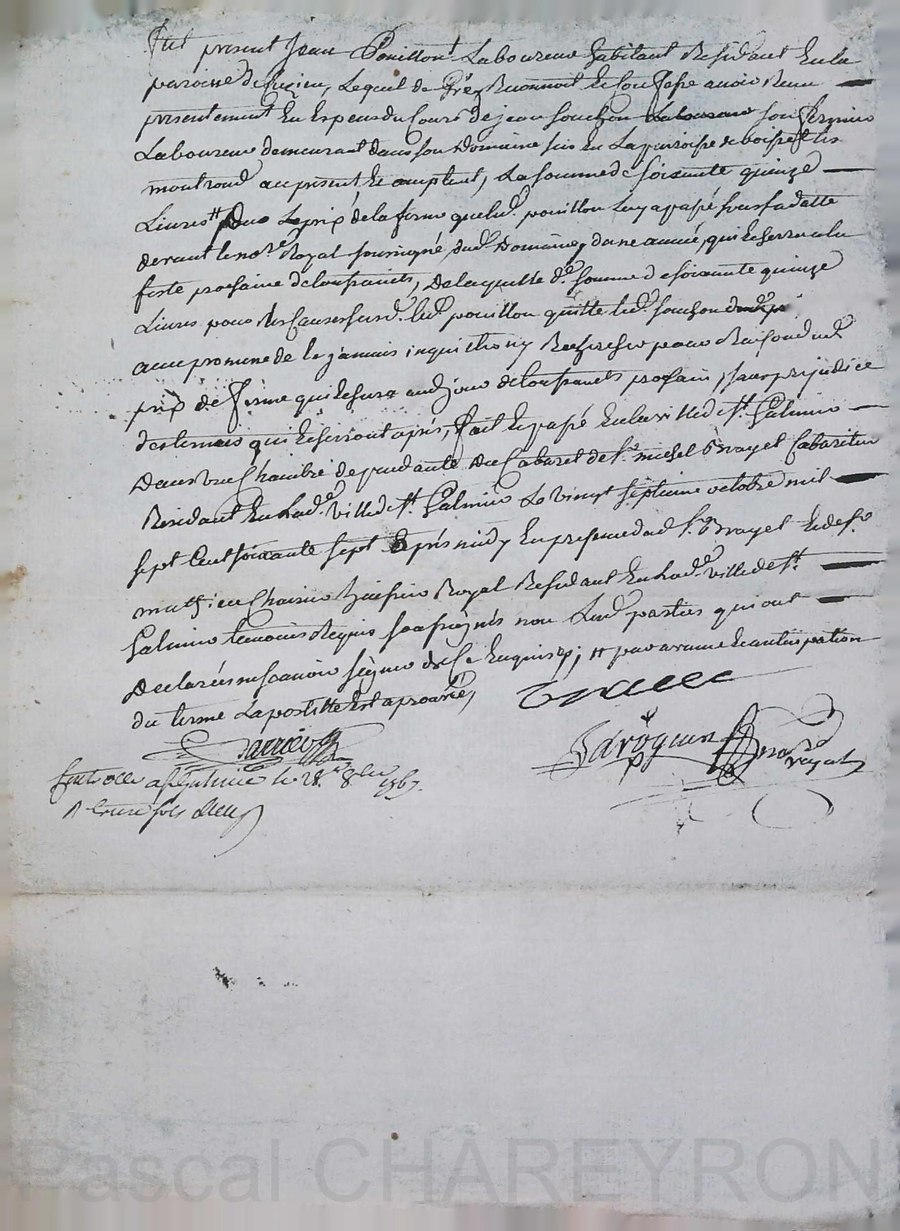 fut present Jean Pouillon Laboureur habitant Residant En la
paroisse de lequel de Gré Reconnoit et Confesse avoir Receu
presentement En Especes du Cours de jean souchon son fermier
Laboureur demeurant dans son Domaine sis en La paroisse de boisset les
montrond au present et acceptent, La somme de soixante quinze
Livres pour Le prix de la ferme que led. pouillon luy a passé
devant le no.re Royal soussigné dud. Domaine, dune année, qui Echerra a la
feste prochaine de toussaints, de laquelle d.e somme de soixante quinze
Livres pour Les Causes susd. led. pouillon quitte led. souchon
avec promesse de ne le jamais inquietter ny Rechercher pour Raison dud.
prix de ferme qui Echerra aud. jour de toussaints prochain, sans prejudice
des termes qui Echerront après, fait Et passé En la ville de st. Galmier
Dans une Chambre dependante du Cabaret de s.r michel Brayet Cabaretier
Residant En lad. ville de st. Galmier Le vingt septieme octobre mil
sept Cent soixante sept après midy En presence dud. s.r Brayet et de s.r
mathieu huissier Royal Residant En lad.e ville de st.
Galmier temoins Requis soussignés non Lesd. parties qui ont
Declarés ne scavoir signer de Ce Enquis; et par avance et anticipation
du terme La postille est aprouvée,
no.re
royal
a st galmier le 28. 8bre 1767.
R treize sols
Pascal CHAREYRON